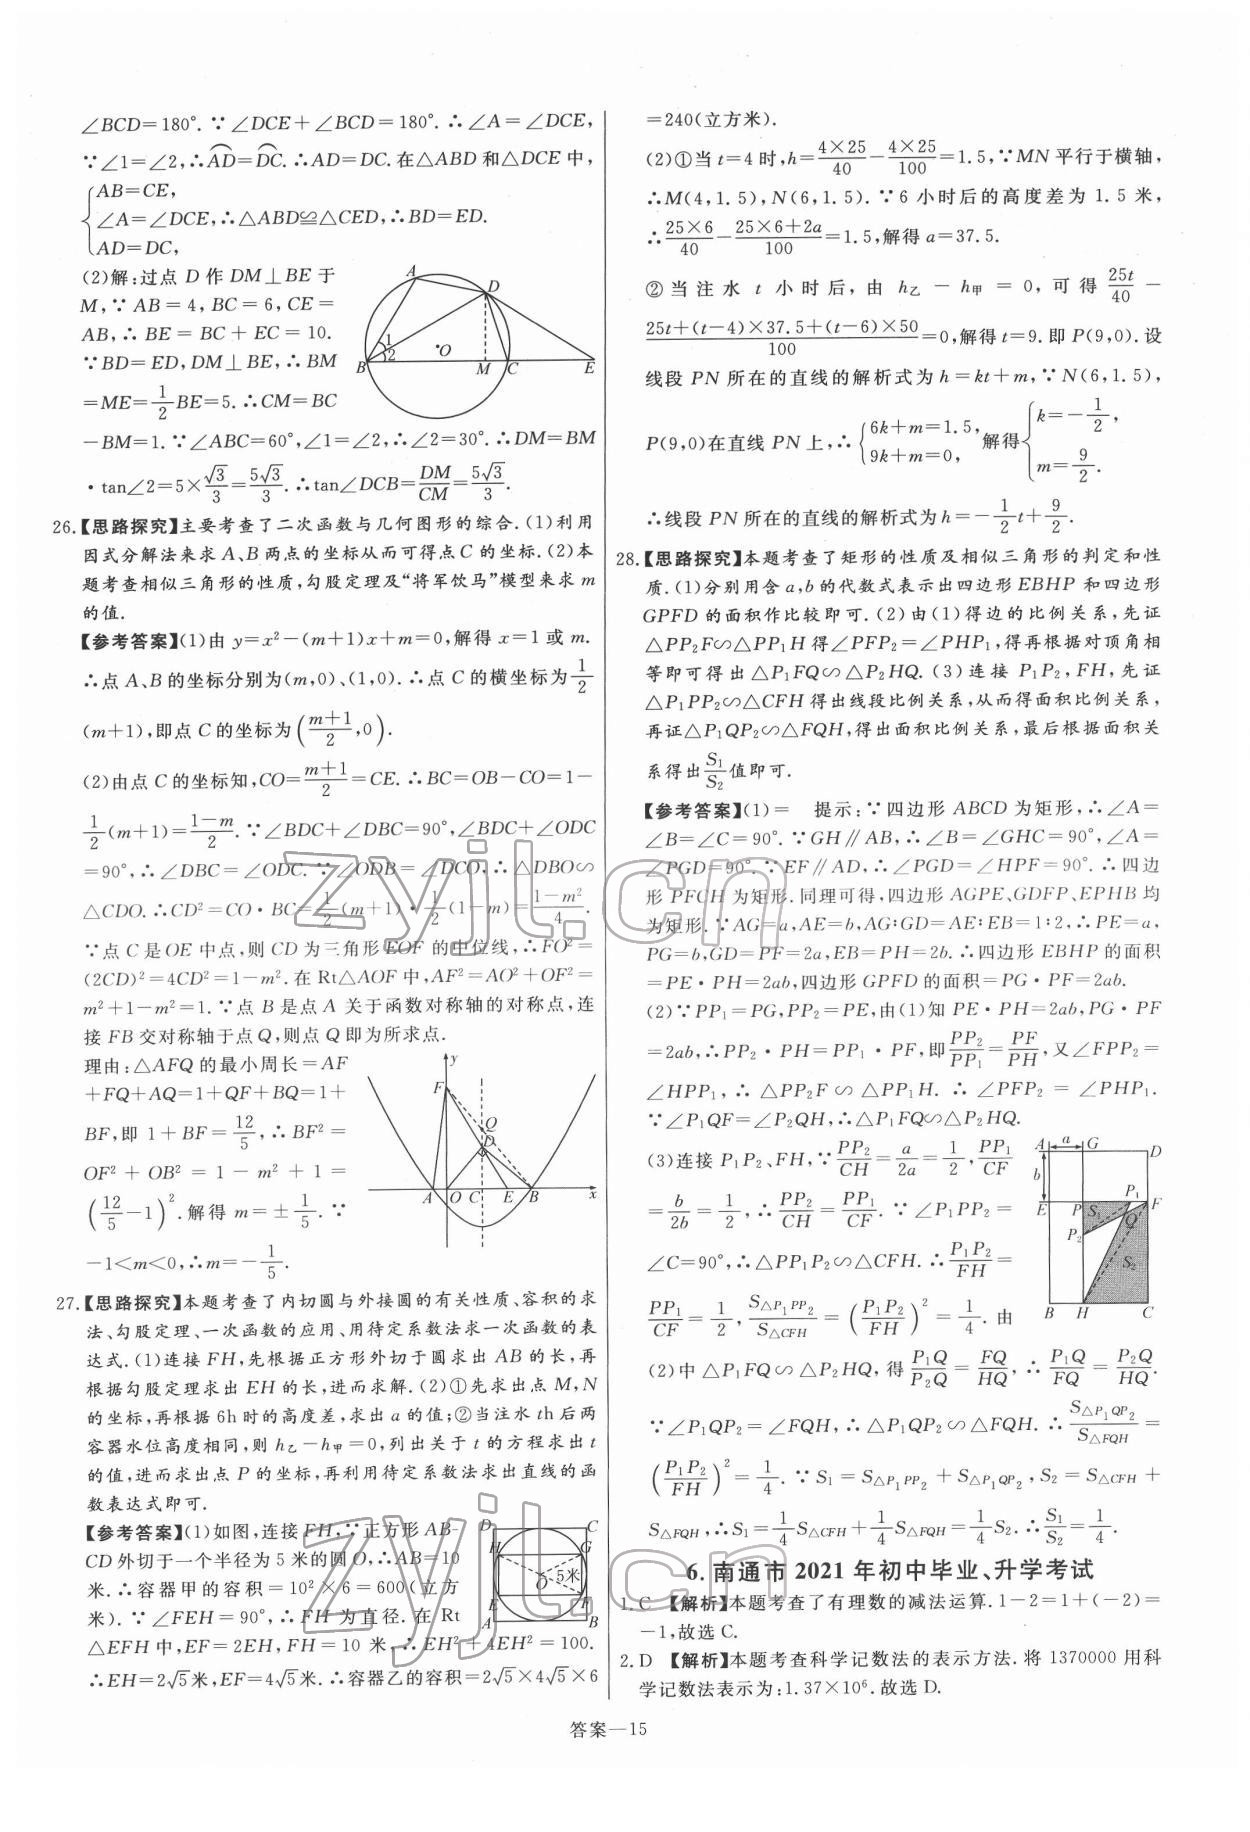 ∠BCD=180°.∵∠DCE+∠BCD=180°.∴∠A=∠DCE,
∵∠1=∠2,∴AD=DC.∴AD=DC.在△ABD和△DCE中,
AB=CE,
∠A=∠DCE,∴△ABD≌△CED,∴BD=ED.
AD=DC,
(2)解:过点D作DM⊥BE于
M,∵AB=4,BC=6,CE=
AB,∴BE=BC+EC=10.
∵BD=ED,DM⊥BE,∴BM
=ME=1/2BE=5.∴CM=BC
A
D
1
2
O
B
M
C
E
-BM=1.∵∠ABC=60°,∠1=∠2,∴∠2=30°.∴DM=BM
·tan∠2=5×√3/3=5√3/3.∴tan∠DCB=DM/CM=5√3/3.
26.【思路探究】主要考查了二次函数与几何图形的综合.(1)利用
因式分解法来求A、B两点的坐标从而可得点C的坐标.(2)本
题考查相似三角形的性质,勾股定理及“将军饮马”模型来求m
的值.
【参考答案】(1)由y=x²-(m+1)x+m=0,解得x=1或m.
∴点A、B的坐标分别为(m,0)、(1,0).∴点C的横坐标为1/2
(m+1),即点C的坐标为(m+1/2,0).
(2)由点C的坐标知,CO=m+1/2=CE.∴BC=OB-CO=1-
1/2(m+1)=1-m/2.∵∠BDC+∠DBC=90°,∠BDC+∠ODC
=90°,∴∠DBC=∠ODC.∵∠ODB=∠DCO,∴△DBO∽
△CDO.∴CD²=CO·BC=1/2(m+1)·1/2(1-m)=1-m²/4.
∵点C是OE中点,则CD为三角形EOF的中位线,∴FO²=
(2CD)²=4CD²=1-m².在Rt△AOF中,AF²=AO²+OF²=
m²+1-m²=1.∵点B是点A关于函数对称轴的对称点,连
接FB交对称轴于点Q,则点Q即为所求点.
理由:△AFQ的最小周长=AF
+FQ+AQ=1+QF+BQ=1+
BF,即1+BF=12/5,∴BF²=
OF²+OB²=1-m²+1=
(12/5-1)².解得m=±1/5.∵
-1<m<0,∴m=-1/5.
y
F
Q
D
A
O
C
E
B
x
27.【思路探究】本题考查了内切圆与外接圆的有关性质、容积的求
法、勾股定理、一次函数的应用、用待定系数法求一次函数的表
达式.(1)连接FH,先根据正方形外切于圆求出AB的长,再
根据勾股定理求出EH的长,进而求解.(2)①先求出点M,N
的坐标,再根据6h时的高度差,求出a的值;②当注水th后两
容器水位高度相同,则h乙-h甲=0,列出关于t的方程求出t
的值,进而求出点P的坐标,再利用待定系数法求出直线的函
数表达式即可.
【参考答案】(1)如图,连接FH,∵正方形AB-
CD外切于一个半径为5米的圆O,∴AB=10
米.∴容器甲的容积=10²×6=600(立方
米).∵∠FEH=90°,∴FH为直径.在Rt
△EFH中,EF=2EH,FH=10米,∴EH²+4EH²=100.
∴EH=2√5米,EF=4√5米,∴容器乙的容积=2√5×4√5×6
D
C
H
G
5米
O
E
F
A
B
=240(立方米).
(2)①当t=4时,h=4×25/40-4×25/100=1.5,∵MN平行于横轴,
∴M(4,1.5),N(6,1.5).∵6小时后的高度差为1.5米,
∴25×6/40-25×6+2a/100=1.5,解得a=37.5.
②当注水t小时后,由h乙-h甲=0,可得25t/40-
25t+(t-4)×37.5+(t-6)×50/100=0,解得t=9.即P(9,0).设
线段PN所在的直线的解析式为h=kt+m,∵N(6,1.5),
P(9,0)在直线PN上,∴{6k+m=1.5,9k+m=0,解得{k=-1/2,m=9/2.
∴线段PN所在的直线的解析式为h=-1/2t+9/2.
28.【思路探究】本题考查了矩形的性质及相似三角形的判定和性
质.(1)分别用含a,b的代数式表示出四边形EBHP和四边形
GPFD的面积作比较即可.(2)由(1)得边的比例关系,先证
△PP₂F∽△PP₁H得∠PFP₂=∠PHP₁,得再根据对顶角相
等即可得出△P₁FQ∽△P₂HQ.(3)连接P₁P₂,FH,先证
△P₁PP₂∽△CFH得出线段比例关系,从而得面积比例关系,
再证△P₁QP₂∽△FQH,得出面积比例关系,最后根据面积关
系得出S₁/S₂值即可.
【参考答案】(1)= 提示:∵四边形ABCD为矩形,∴∠A=
∠B=∠C=90°.∵GH∥AB,∴∠B=∠GHC=90°,∠A=
∠PGD=90°.∵EF∥AD,∴∠PGD=∠HPF=90°.∴四边
形PFCH为矩形.同理可得,四边形AGPE、GDFP、EPHB均
为矩形.∵AG=a,AE=b,AG:GD=AE:EB=1:2,∴PE=a,
PG=b,GD=PF=2a,EB=PH=2b.∴四边形EBHP的面积
=PE·PH=2ab,四边形GPFD的面积=PG·PF=2ab.
(2)∵PP₁=PG,PP₂=PE,由(1)知PE·PH=2ab,PG·PF
=2ab,∴PP₂·PH=PP₁·PF,即PP₂/PP₁=PF/PH,又∠FPP₂=
∠HPP₁,∴△PP₂F∽△PP₁H.∴∠PFP₂=∠PHP₁.
∵∠P₁QF=∠P₂QH,∴△P₁FQ∽△P₂HQ.
(3)连接P₁P₂、FH,∵PP₂/CH=a/2a=1/2,PP₁/CF
=b/2b=1/2,∴PP₂/CH=PP₁/CF.∵∠P₁PP₂=
∠C=90°,∴△PP₁P₂∽△CFH.∴P₁P₂/FH=
PP₁/CF=1/2,S△P₁PP₂/S△CFH=(P₁P₂/FH)²=1/4.由
A
a
G
D
b
E
P
S₁
P₁
F
Q
P₂
S₂
B
H
C
(2)中△P₁FQ∽△P₂HQ,得P₁Q/P₂Q=FQ/HQ,∴P₁Q/FQ=P₂Q/HQ.
∵∠P₁QP₂=∠FQH,∴△P₁QP₂∽△FQH.∴S△P₁QP₂/S△FQH=
(P₁P₂/FH)²=1/4.∵S₁=S△P₁PP₂+S△P₁QP₂,S₂=S△CFH+
S△FQH,∴S₁=1/4S△CFH+1/4S△FQH=1/4S₂.∴S₁/S₂=1/4.
6.南通市2021年初中毕业、升学考试
1.C 【解析】本题考查了有理数的减法运算.1-2=1+(-2)=
-1,故选C.
2.D 【解析】本题考查科学记数法的表示方法.将1370000用科
学记数法表示为:1.37×10⁶.故选D.
答案—15
zyjl.cn
zyjl.cn